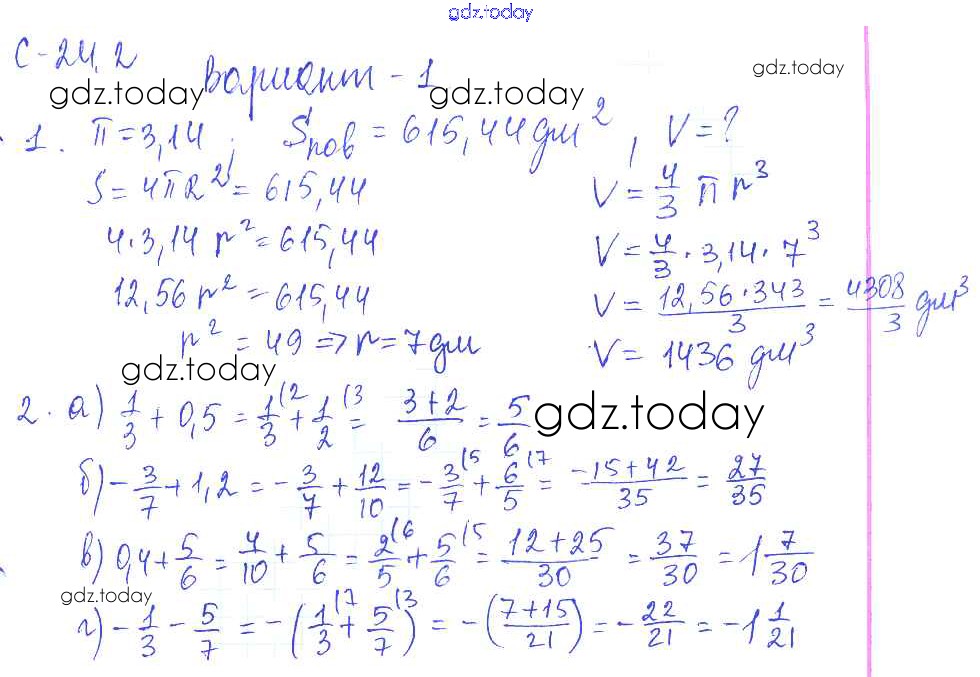 gdz.today
С-24,2
Вариант-1
gdz.today
gdz.today gdz.today
1. π=3,14; Sпов = 615,44 дм², V=?
S=4πR²=615,44 V=4/3 π r³
4·3,14 r²=615,44 V=4/3·3,14·7³
12,56 r²=615,44 V=12,56·343/3=4308/3 дм³
r²=49 => r=7дм V=1436 дм³
gdz.today
2. а) 1/3+0,5=1/3(2+1/2(3=3+2/6=5/6
gdz.today
б) -3/7+1,2=-3/7+12/10=-3/7(5+6/5(7=-15+42/35=27/35
в) 0,4+5/6=4/10+5/6=2/5(6+5/6(5=12+25/30=37/30=1 7/30
gdz.today
г) -1/3-5/7=-(1/3(7+5/7(3)=-(7+15/21)=-22/21=-1 1/21